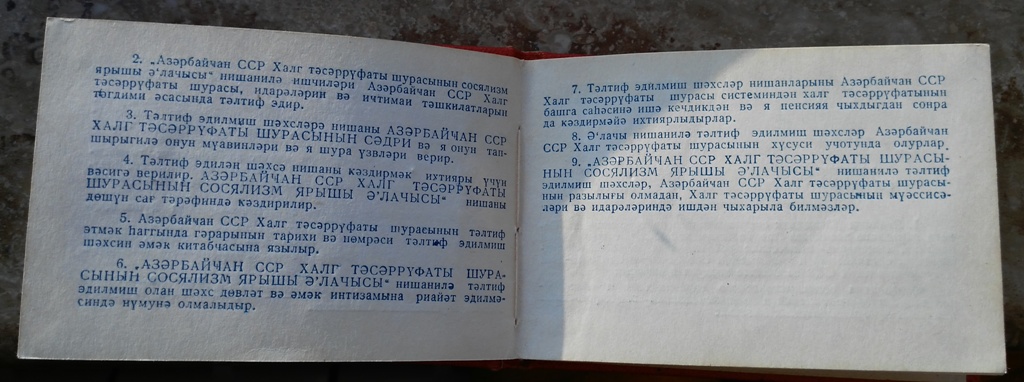 2. „Азәрбайҹан ССР Халг тәсәррүфаты шурасынын сосялизм
ярышы ә'лачысы“ нишанилә ишчиләри Азәрбайҹан ССР Халг
тәсәррүфаты шурасы, идарәләрин вә ичтимаи тәшкилатларын
тәгдими әсасында тәлтиф эдир.
3. Тәлтиф эдилмиш шәхсләрә нишаны АЗӘРБАЙҸАН ССР
ХАЛГ ТӘСӘРРҮФАТЫ ШУРАСЫНЫН СӘДРИ вә я онун тап-
шырыгилә онун мүавинләри вә я шура үзвләри верир.
4. Тәлтиф эдилән шәхсә нишаны кәздирмәк ихтияры үчүн
вәсигә верилир. АЗӘРБАЙҸАН ССР ХАЛГ ТӘСӘРРҮФАТЫ
ШУРАСЫНЫН СОСЯЛИЗМ ЯРЫШЫ Ә'ЛАЧЫСЫ“ нишаны
дөшүн сағ тәрәфиндә кәздирилир.
5. Азәрбайҹан ССР Халг тәсәррүфаты шурасынын тәлтиф
этмәк һаггында гәрарынын тарихи вә нөмрәси тәлтиф эдилмиш
шәхсин әмәк китабчасына язылыр.
6. „АЗӘРБАЙҸАН ССР ХАЛГ ТӘСӘРРҮФАТЫ ШУРА-
СЫНЫН СОСЯЛИЗМ ЯРЫШЫ Ә'ЛАЧЫСЫ“ нишанилә тәлтиф
эдилмиш олан шәхс дөвләт вә әмәк интизамына риайәт эдилмә-
синдә нүмунә олмалыдыр.
7. Тәлтиф эдилмиш шәхсләр нишанларыны Азәрбайҹан ССР
Халг тәсәррүфаты шурасы системиндән халг тәсәррүфатынын
башга саһәсинә ишә кечдикдән вә я пенсия чыхдыгдан сонра
да кәздирмәйә ихтиярлыдырлар.
8. Ә'лачы нишанилә тәлтиф эдилмиш шәхсләр Азәрбайҹан
ССР Халг тәсәррүфаты шурасынын хүсуси учотунда олурлар.
9. „АЗӘРБАЙҸАН ССР ХАЛГ ТӘСӘРРҮФАТЫ ШУРАСЫ-
НЫН СОСЯЛИЗМ ЯРЫШЫ Ә'ЛАЧЫСЫ“ нишанилә тәлтиф
эдилмиш шәхсләр, Азәрбайҹан ССР Халг тәсәррүфаты шурасы-
нын разылығы олмадан, Халг тәсәррүфаты шурасынын мүәссисә-
ләри вә идарәләриндә ишдән чыхарыла билмәзләр.